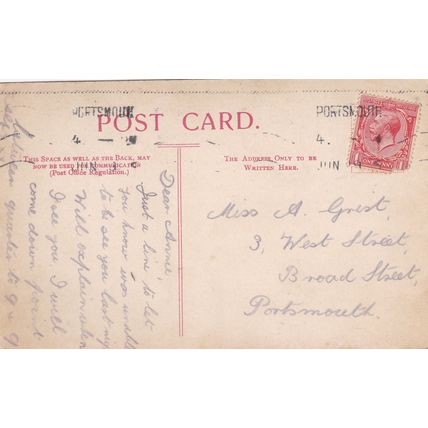 PORTSMOUTH
4
JUN
PORTSMOUTH
4.
JUN 14
POST CARD.
THIS SPACE AS WELL AS THE BACK, MAY
NOW BE USED FOR COMMUNICATION
(Post Office Regulation.)
THE ADDRESS ONLY TO BE
WRITTEN HERE.
Dear Annie
Just a line to let
you know was unable
to be see you last nig
Will explain when
I see you I will
come down
quarter to 9
Miss A. Grist,
3, West Street,
Broad Street,
Portsmouth.